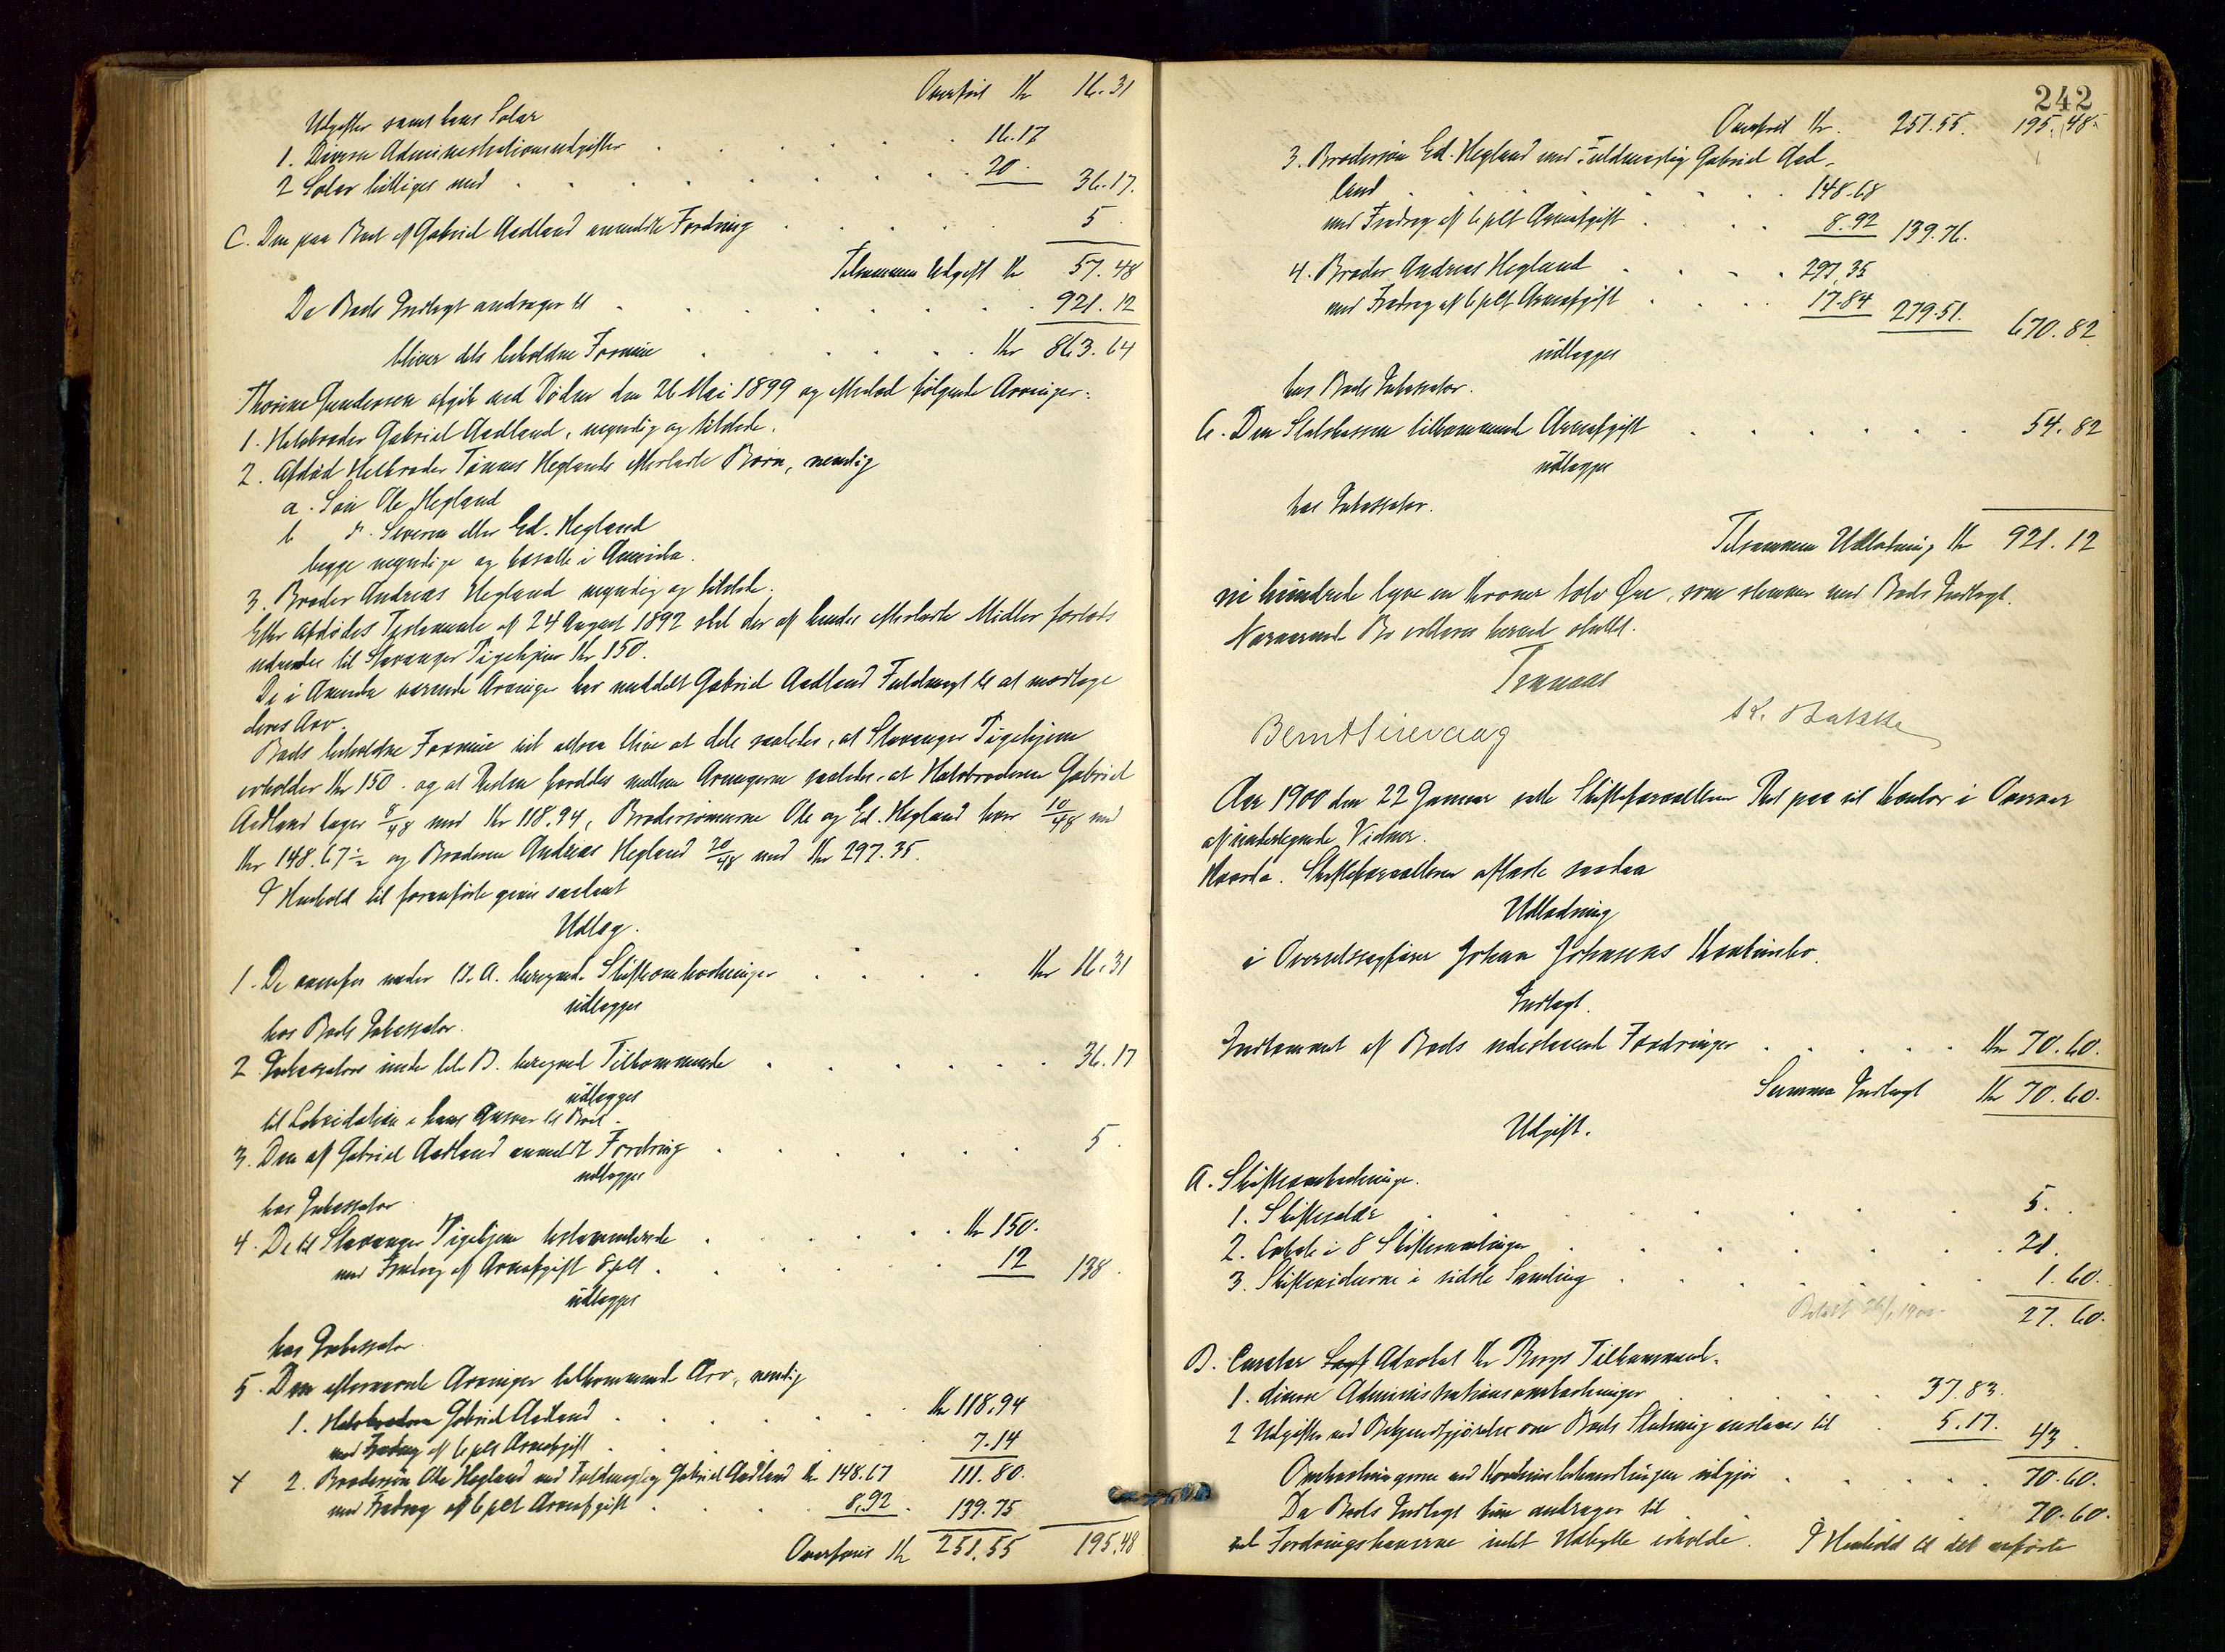 Overført Kr 16.31
Udgifter samt hans Salær
1. Diverse Administrationsudgifter 16.17
2 Salær billiges med 20. 36.17.
C. Den paa Boet af Gabriel Aadland anmeldte Fordring 5.
Tilsammen Udgift Kr 57.48
Da Boets Indtægt andrager til 921.12
bliver dets beholdne Formue Kr 863.64
Thorine Gundersen afgik ved Døden den 26 Mai 1899 og efterlod følgende Arvinger:
1. Halvbroder Gabriel Aadland, myndig og tilstede.
2. Afdød Helbroder Tønnes Heglands efterladte Børn, nemlig
a. Søn Ole Hegland
b do. Severin eller Ed. Hegland
begge myndige og bosatte i Amerika.
3. Broder Andreas Hegland myndig og tilstede.
Efter Afdødes Testamente af 24 August 1892 skal der af hendes efterladte Midler forlods
udredes til Stavanger Pigehjem Kr 150.
De i Amerika værende Arvinger har meddelt Gabriel Aadland Fuldmagt til at modtage
deres Arv.
Boets beholdne Formue vil altsaa blive at dele saaledes, at Stavanger Pigehjem
erholder Kr 150. og at Resten fordeles mellem Arvingerne saaledes, at Halvbroderen Gabriel
Aadland tager 8/48 med Kr 118.94, Brodersønnerne Ole og Ed. Hegland hver 10/48 med
Kr 148.67½ og Broderen Andreas Hegland 20/48 med Kr 297.35.
I Henhold til foranførte gives saadant
Udlæg.
1. De ovenfor under Lit. A. beregnede Skifteomkostninger Kr 16.31
udlægges
hos Boets Inkassator.
2 Inkassators under lit. B. beregnede Tilkommende 36.17
udlægges
til Likvidation i hans Ansvar til Boet.
3. Den af Gabriel Aadland anmeldte Fordring 5.
udlægges
hos Inkassator
4. De til Stavanger Pigehjem testamenterede Kr 150.
med Fradrag af Arveafgift 8 pCt. 12 138.
udlægges
hos Inkassator.
5. Den efternævnte Arvinger tilkommende Arv, nemlig
1. Halvbroderen Gabriel Aadland Kr 118.94
med Fradrag af 6 pCt Arveafgift 7.14
2. Brodersøn Ole Hegland ved Fuldmægtig Gabriel Aadland Kr 148.67 111.80.
med Fradrag af 6 pCt Arveafgift 8.92. 139.75
Overføres Kr 251.55 195.48
242
Overført Kr. 251.55. 195.48.
3. Brodersøn Ed. Hegland ved Fuldmægtig Gabriel Aad-
land 148.68
med Fradrag af 6 pCt Arveafgift 8.92 139.76.
4. Broder Andreas Hegland 297.35
med Fradrag af 6 pCt Arveafgift 17.84 279.51. 670.82
udlægges
hos Boets Inkassator.
6. Den Statskassen tilkommende Arveafgift 54.82
udlægges
hos Inkassator.
Tilsammen Udlodning Kr 921.12
ni hundrede tyve en Kroner tolv Øre, som stemmer med Boets Indtægt.
Nærværende Bo erklæres herved sluttet.
Tranaas
Bernt Sirevaag K. Bakke
Aar 1900 den 22 Januar satte Skifteforvalteren Ret paa sit Kontor i Overvær
af undertegnede Vidner.
Hvorda. Skifteforvalteren afsluttede saadan
Udlodning
i Overretssagfører Johan Johnsens Konkursbo.
Indtægt.
Indkommet af Boets udestaaende Fordringer Kr 70.60.
Summa Indtægt Kr 70.60.
Udgift.
A. Skifteomkostninger.
1. Skiftesalær 5.
2. Betale i 8 Skiftesamlinger 21.
3. Skiftevidnerne i sidste Samling 1.60.
Betalt 26/1 1900. 27.60.
B. Curator Sagf Advokat Kr Bergs Tilkommende.
1. diverse Administrationsomkostninger 37.83.
2 Udgifter ved Bekjendtgjørelse om Boets Slutning anslaaes til 5.17. 43.
Omkostningerne ved Konkursbehandlingen udgjør 70.60.
Da Boets Indtægt kun andrager til 70.60.
vil Fordringshaverne intet Udbytte erholde. I Henhold til det anførte